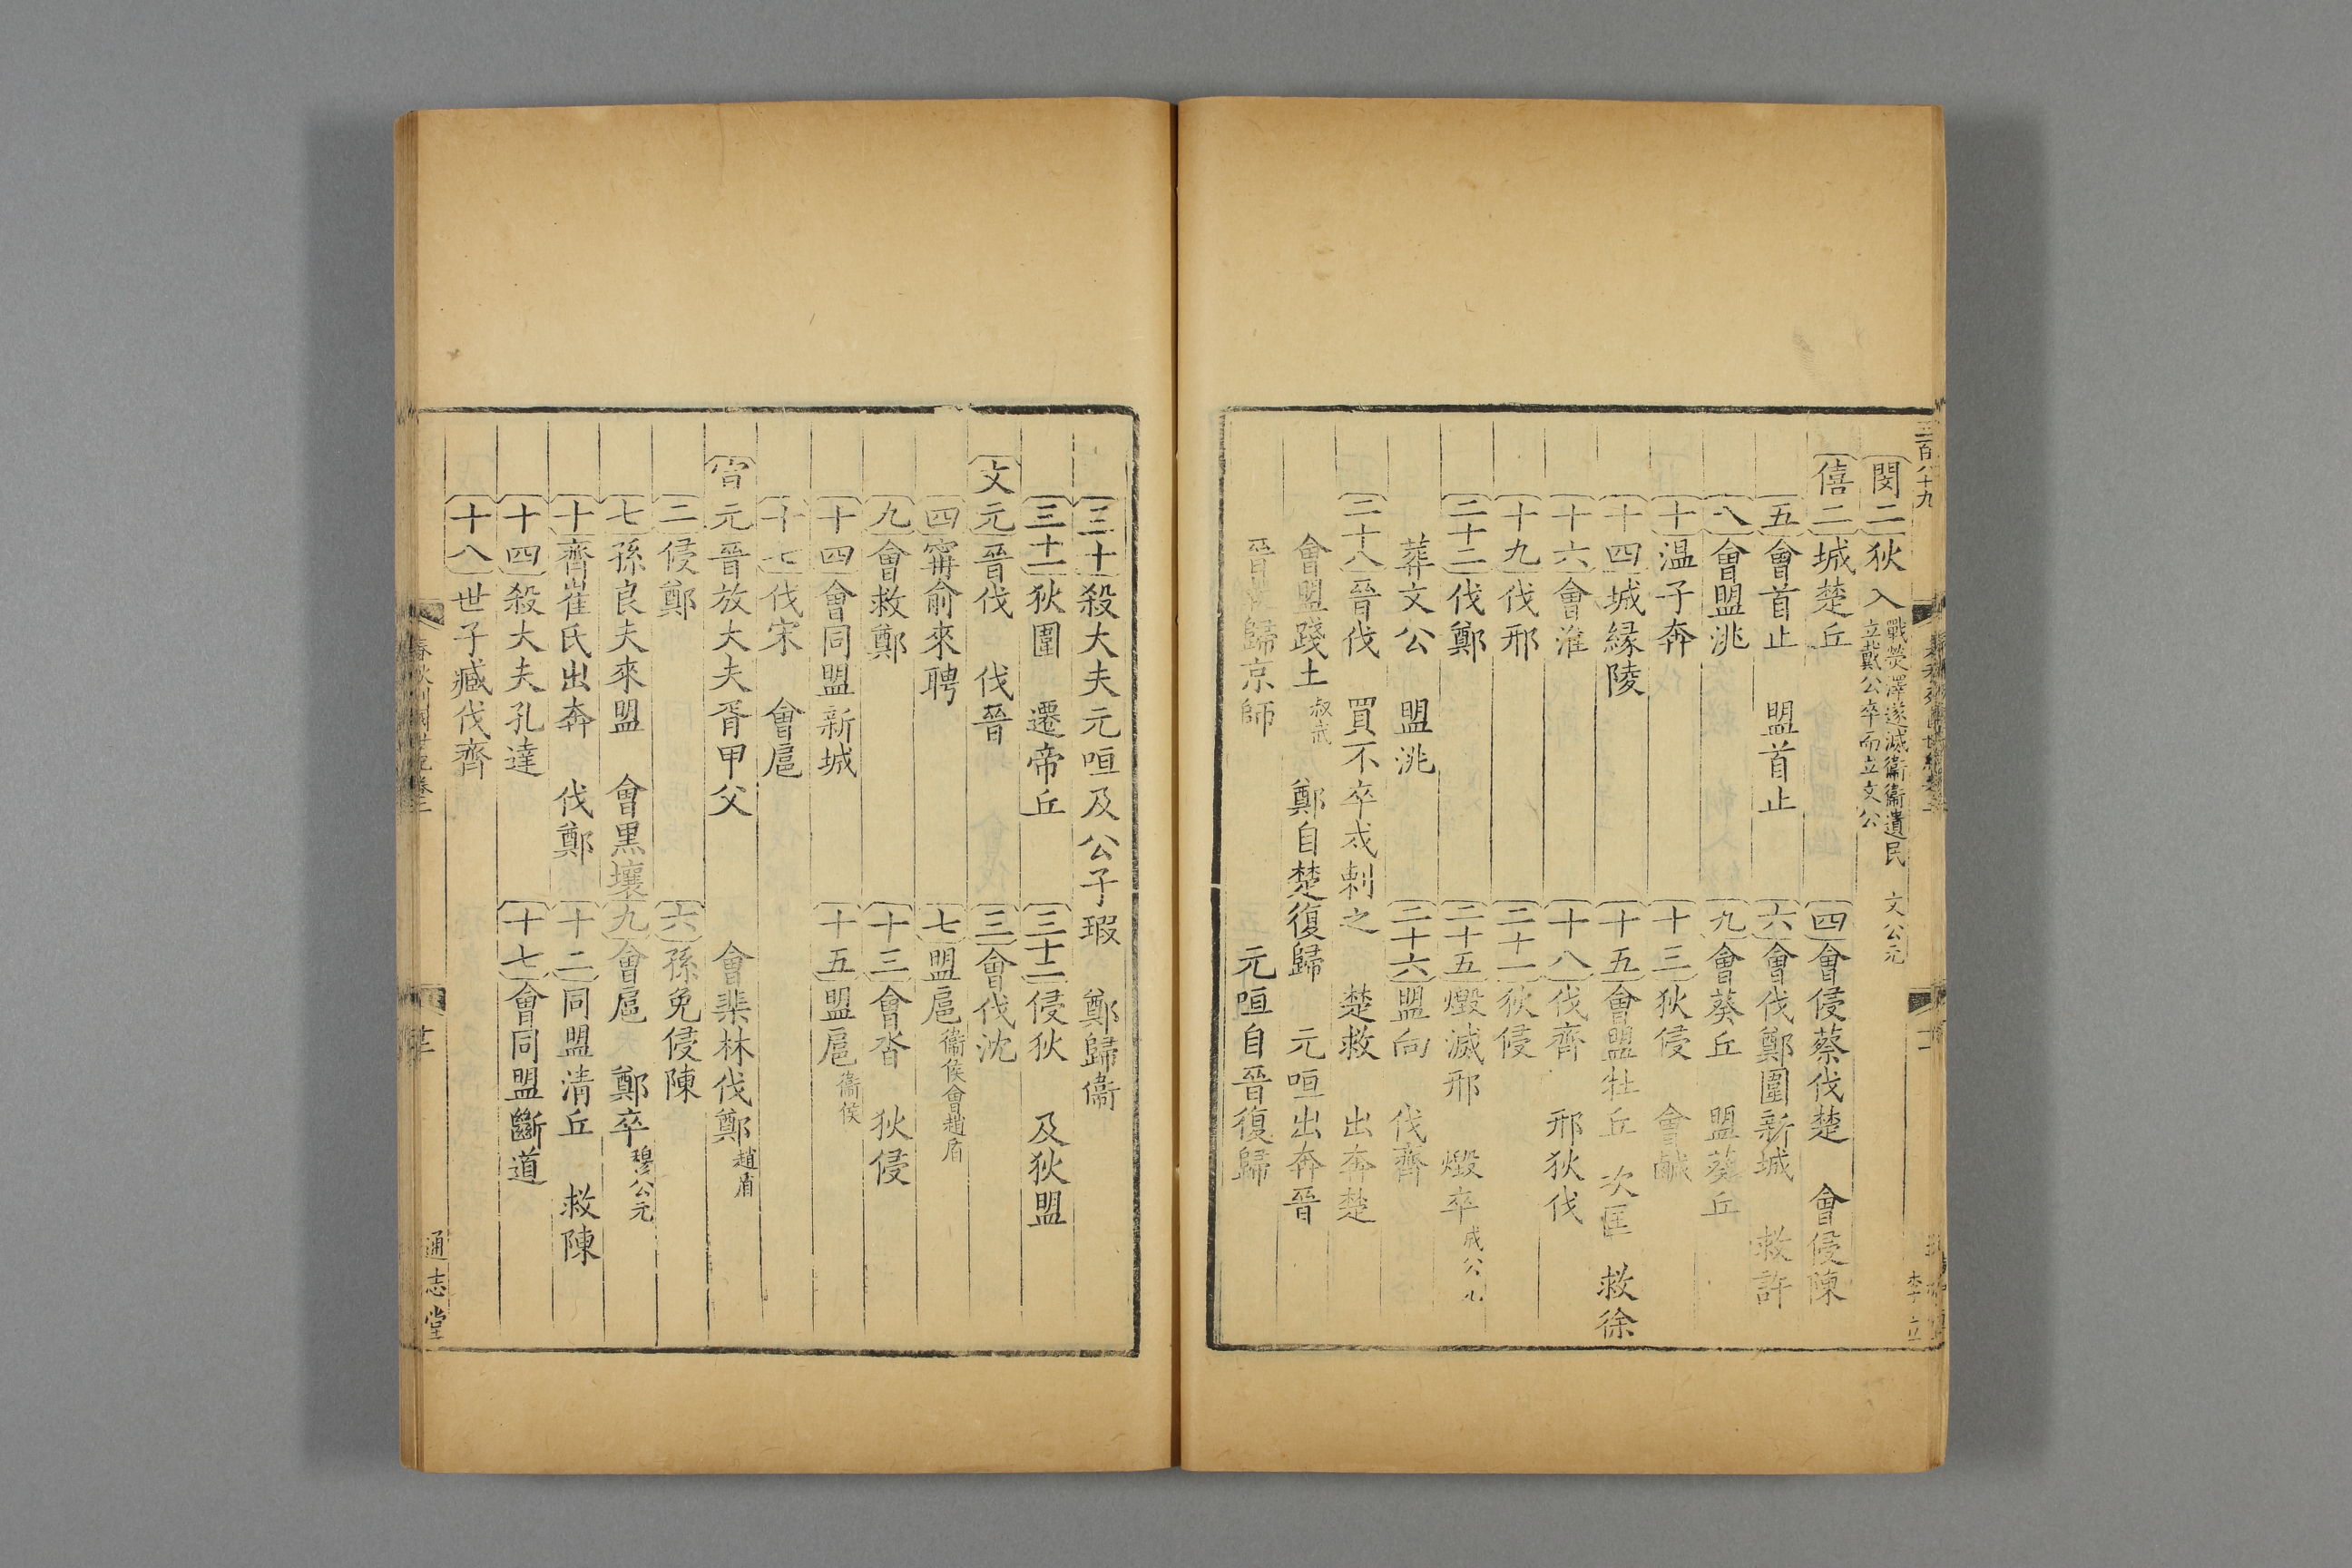 三百八十九
閔二狄入 戰熒澤遂滅衞衞遺民 立戴公卒而立文公 文公元
僖二城楚丘 四會侵蔡伐楚 會侵陳
五會首止 盟首止 六會伐鄭圍新城 救許
八會盟洮 九會葵丘 盟葵丘
十温子奔 十三狄侵 會鹹
十四城緣陵 十五會盟牡丘 次匡 救徐
十六會淮 十八伐齊 邢狄伐
十九伐邢 二十一狄侵
二十二伐鄭 二十五燬滅邢 燬卒 成公
葬文公 盟洮 二十六盟向 伐齊
二十八晉伐 買不卒戍刺之 楚救 出奔楚
會盟踐土 叔武 鄭自楚復歸 元咺出奔晉
晉 歸京師 元咺自晉復歸
李立
三十殺大夫元咺及公子瑕 鄭歸衞
三十一狄圍 遷帝丘 三十二侵狄 及狄盟
文元晉伐 伐晉 三會伐沈
四甯俞來聘 七盟扈 衞侯會趙盾
九會救鄭 十三會沓 狄侵
十四會同盟新城 十五盟扈 衞侯
十七伐宋 會扈
宣元晉放大夫胥甲父 會棐林伐鄭 趙盾
二侵鄭 六孫免侵陳
七孫良夫來盟 會黑壤 九會扈 鄭卒 穆公元
十齊崔氏出奔 伐鄭 十二同盟清丘 救陳
十四殺大夫孔達 十七會同盟斷道
十八世子臧伐齊
通志堂